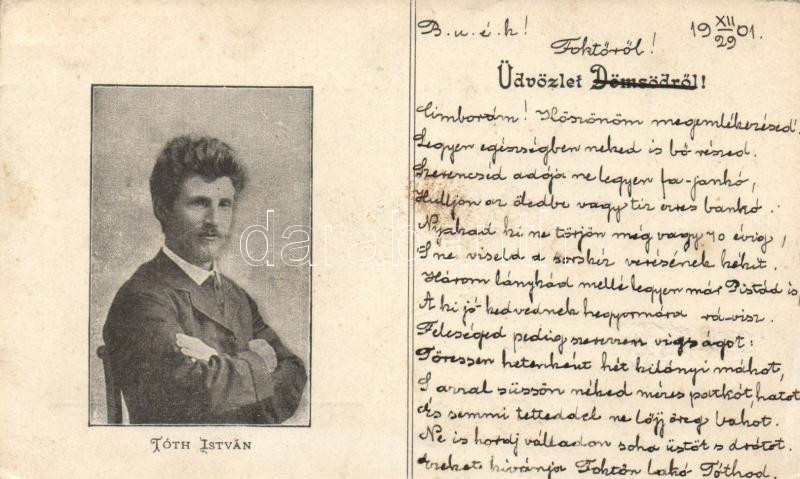 B. u. é. k!
19 XII/29 01.
Foktőről!
Üdvözlet Dömsödről!
Cimborám! Köszönöm megemlékezésed!
Legyen egészségben neked is bő részed.
Szerencséd adója ne legyen fa-jankó,
Hulljon az öledbe vagy tiz ezres bankó.
Nyakad ki ne törjön még vagy 70 évig,
S ne viseld a sorskéz verésének kékit.
Három lánykád mellé legyen már Pistád is,
A ki jó kedvednek hegyormára rá-visz.
Feleséged pedig szerezzen vigságot:
Töressen hetenként hét kilányi mákot,
S azzal süssön néked mézes patkót, hatot
És semmi tetteddel ne lőjj öreg bakot.
Ne is hordj válladon soha üstöt s drótot.
Ezeket kivánja Foktőn lakó Tóthod.
TÓTH ISTVÁN
darabanth